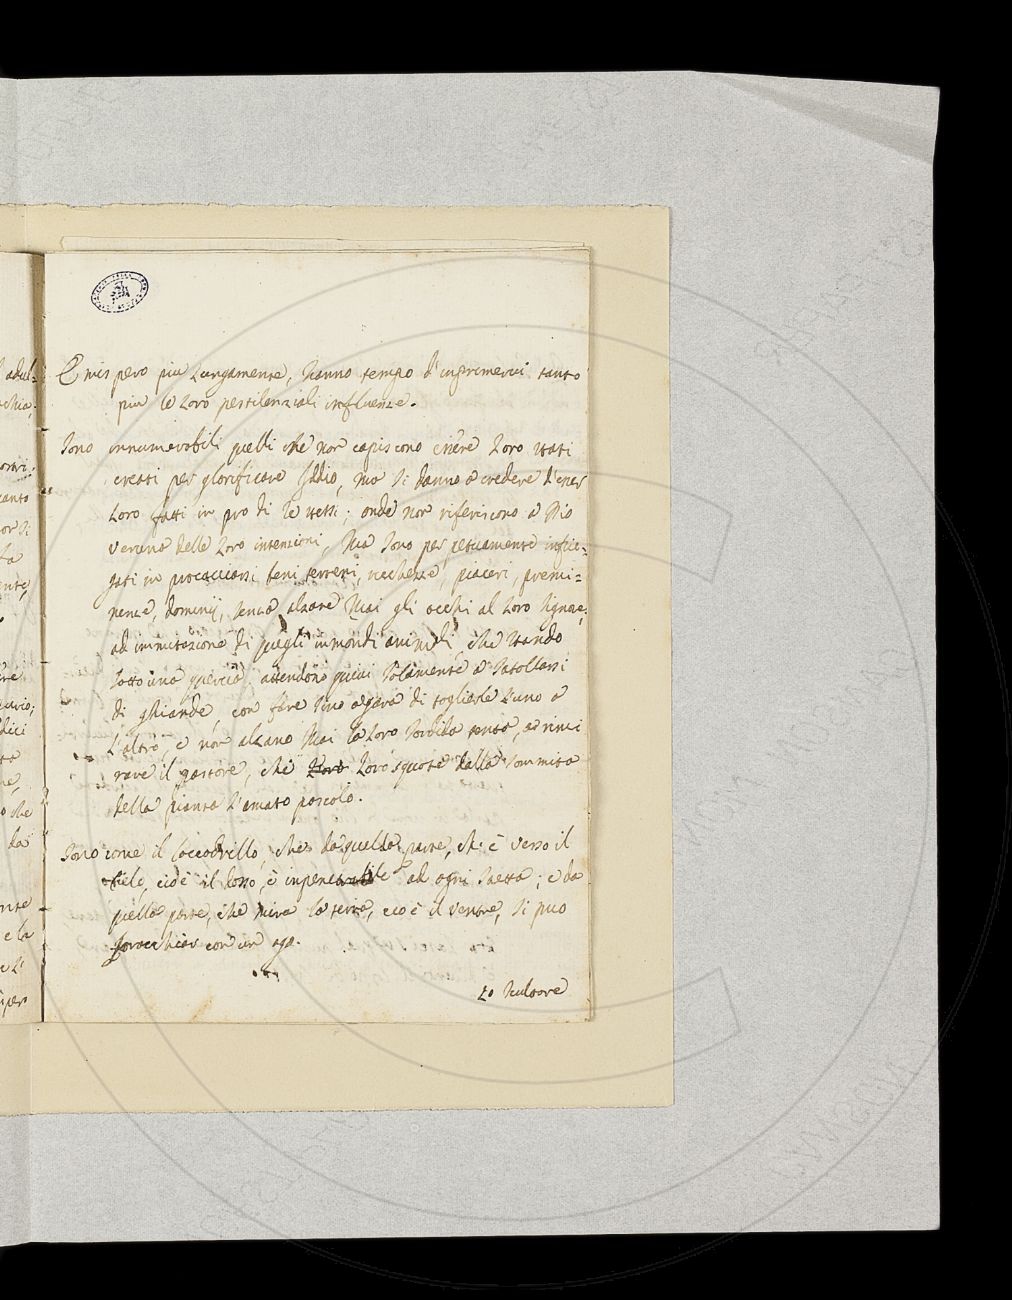 E mis pero piu Lungamente, hanno tempo d'imprimervi tanto
piu le Loro pestilenziali influenze.
Sono innumerabili quelli che non capiscono essere Loro stati
creati per glorificare Iddio, ma si danno a credere d'esser
Loro fatti in pro di se stessi; onde non riferiscono a Dio
veruna delle Loro intenzioni, Ma sono perpetuamente infie-
gati in procacciarsi beni terreni, richezze, piaceri, premi=
nenze, dominij, senza alzare Mai gli occhi al Loro Signore;
ad immitazione di quegli immondi animali, che stando
sotto una quercia, attendono quivi solamente a satollarsi
di ghiande, con fare sino a gara di togliersele L'uno a
L'altro, e non alzano Mai la Loro sordida testa, ad rimi
rare il pastore, che Loro Loro squote dalla sommita
della pianta L'amato pascolo.
Sono come il Coccodrillo, che da quella parte, ch: è verso il
Cielo, cioè il dosso, è impenetrabile ad ogni saetta; e da
quella parte, che mira la terra, cioè il ventre, si può
con un ago.
Lo scultore
adul=
chia,
canto
ente,
dici
o che
da
e la